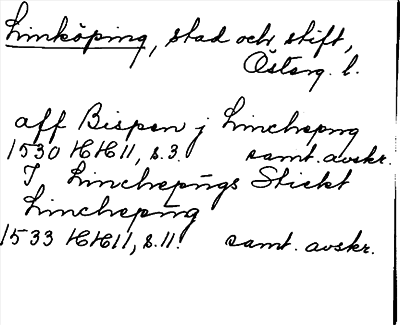 Linköping, stad och stift,
Österg. l.
aff Bispen j Linchepng
1530 HH11, s. 3. samt. avskr.
I Linchepūgs Stickt
Linchepūg
1533 HH11, s. 11. samt. avskr.